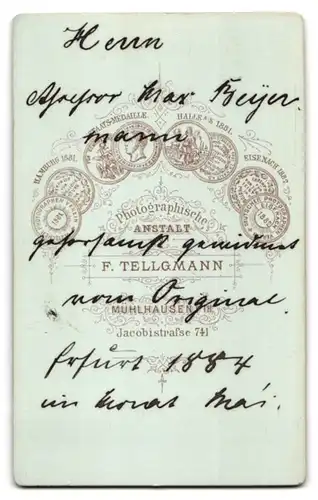 Herrn
Assessor Max Beyer-
mann
STAATS-MEDAILLE.
HALLE a/S. 1881.
HAMBURG 1881.
EISENACH 1882.
Photographische
ANSTALT
gehorsamst gewidmet
F. TELLGMANN
vom Original.
MÜHLHAUSEN i/TH.
Jacobistraße 741
Erfurt 1884
im Monat Mai.